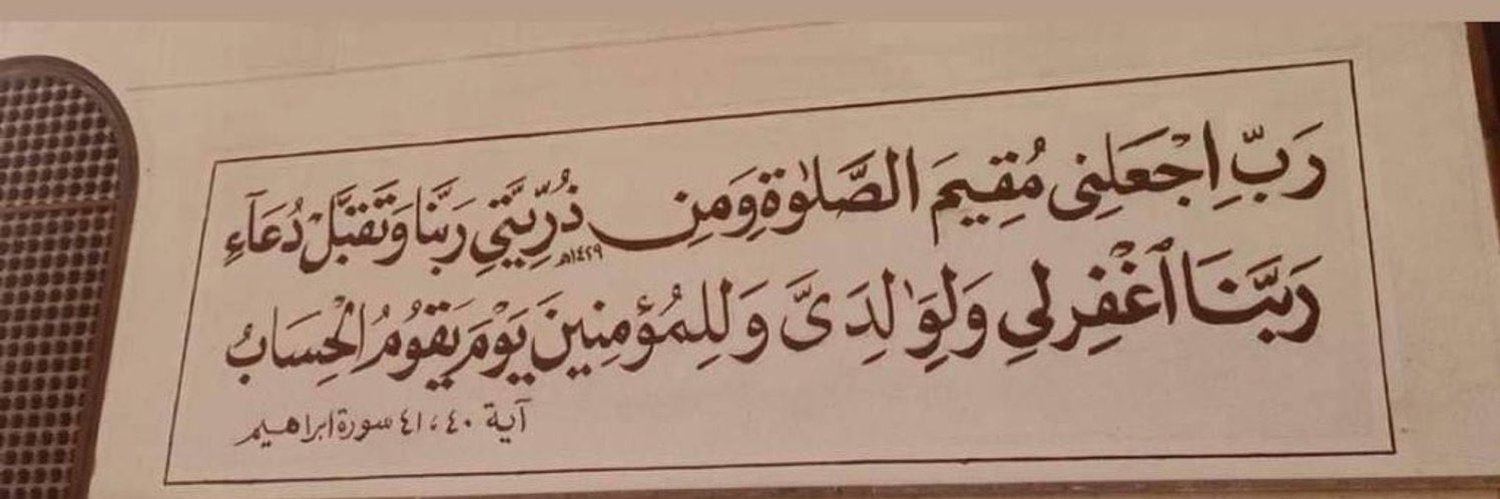 رَبِّ اِجْعَلنِى مُقِيمَ الصَّلٰوةِ وَمِن ذُرِّيَّتِي رَبَّنَا وَتَقَبَّلْ دُعَآءِ
١٤٢٩هـ
رَبَّنَا ٱغْفِرلِي وَلِوَٰلِدَىَّ وَلِلمُؤمِنِينَ يَوْمَ يَقُومُ الْحِسَابُ
آية ٤٠، ٤١ سورة ابراهيم